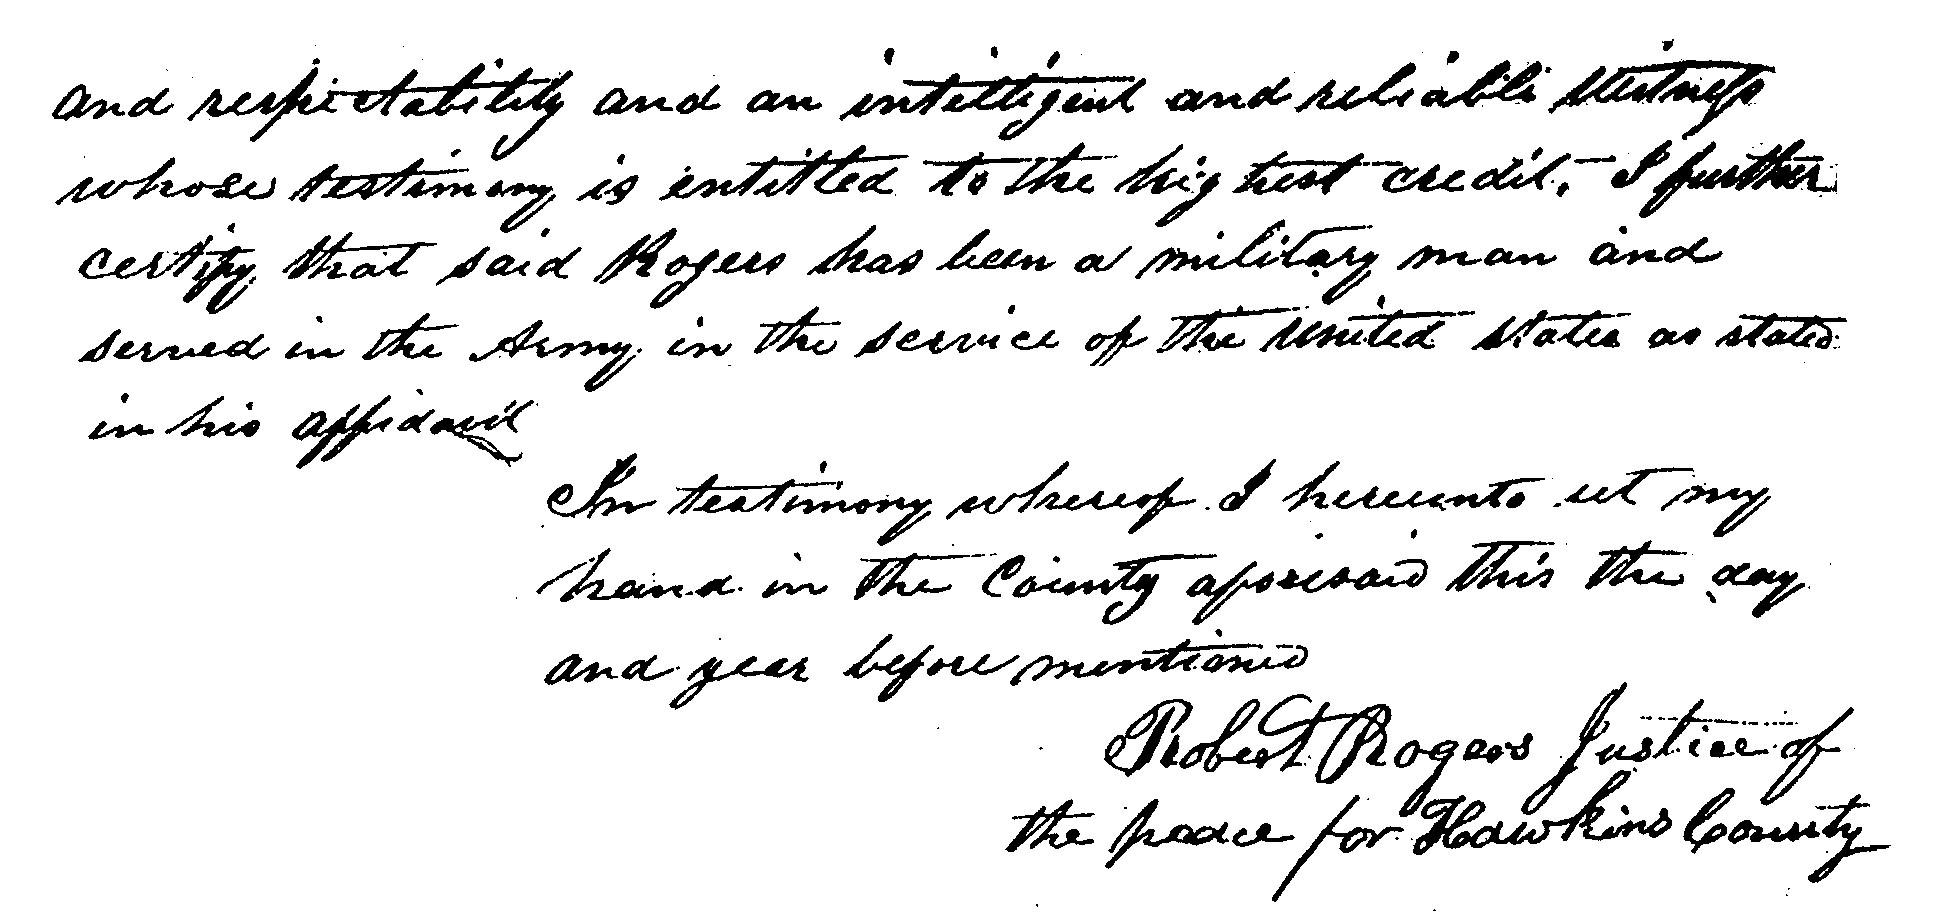 and respectability and an intelligent and reliable witness
whose testimony is entitled to the highest credit, I further
certify that said Rogers has been a military man and
served in the Army in the service of the United States as stated
in his affidavit
In testimony whereof I hereunto set my
hand in the County aforesaid this the day
and year before mentioned
Robert Rogers Justice of
the peace for Hawkins County